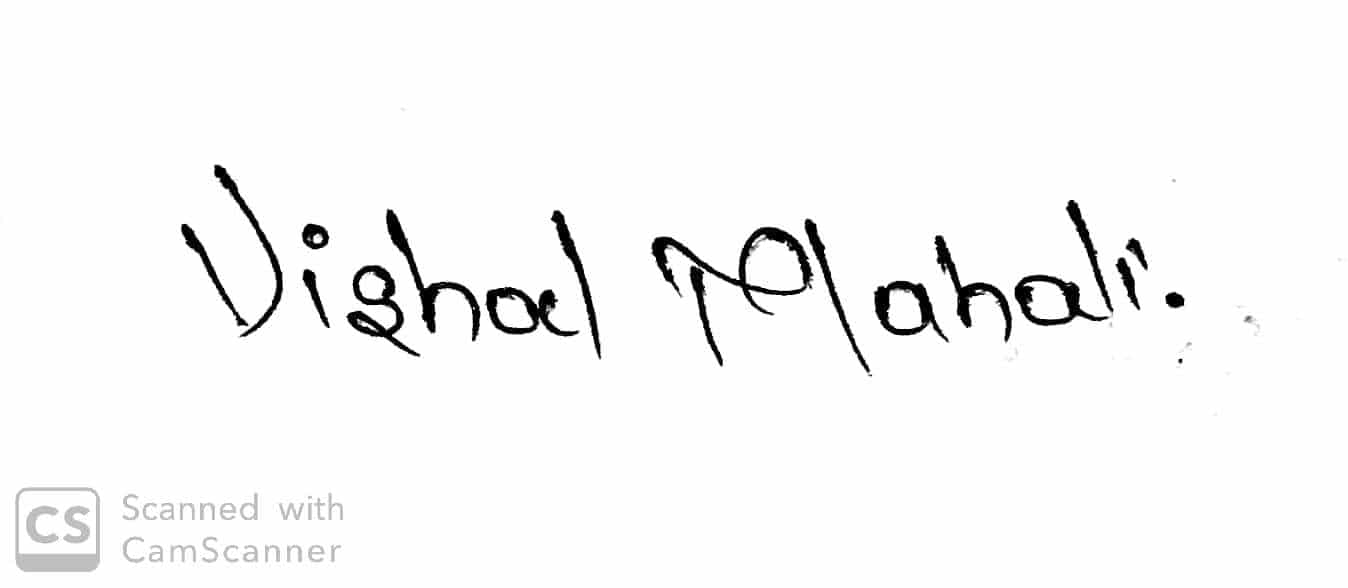 Vishal Mahali.
CS
Scanned with
CamScanner